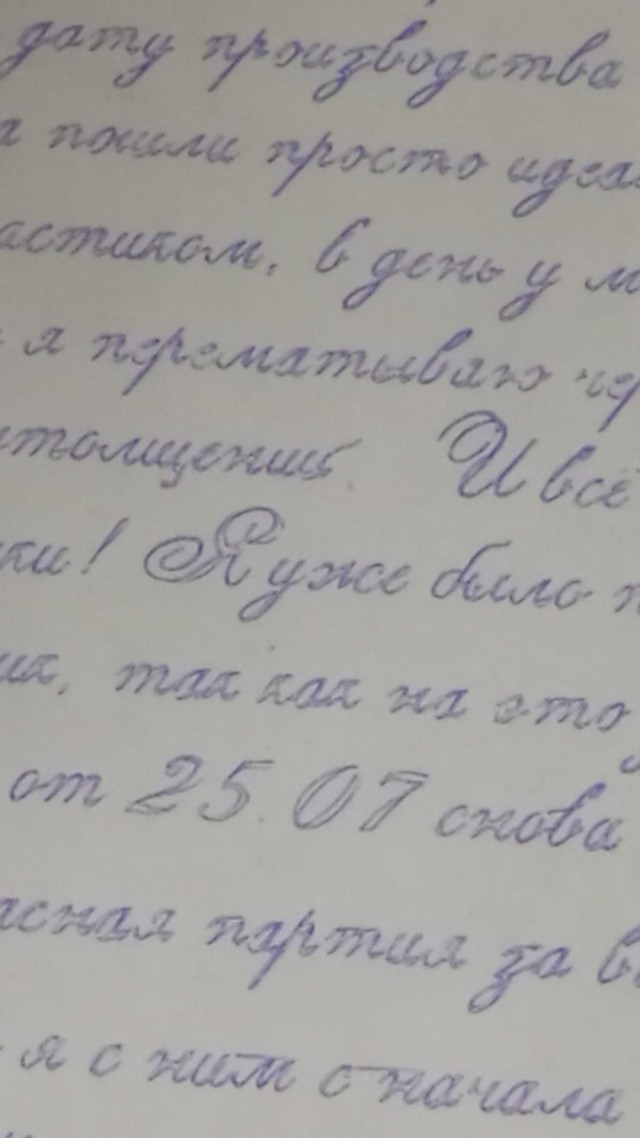 дату производства
пошли просто идеа
астиком, в день у м
я перематываю чер
утолщений. И всё
ки! Я уже было п
ик, так как на это
от 25.07 снова
асная партия за в
я с ним сначала